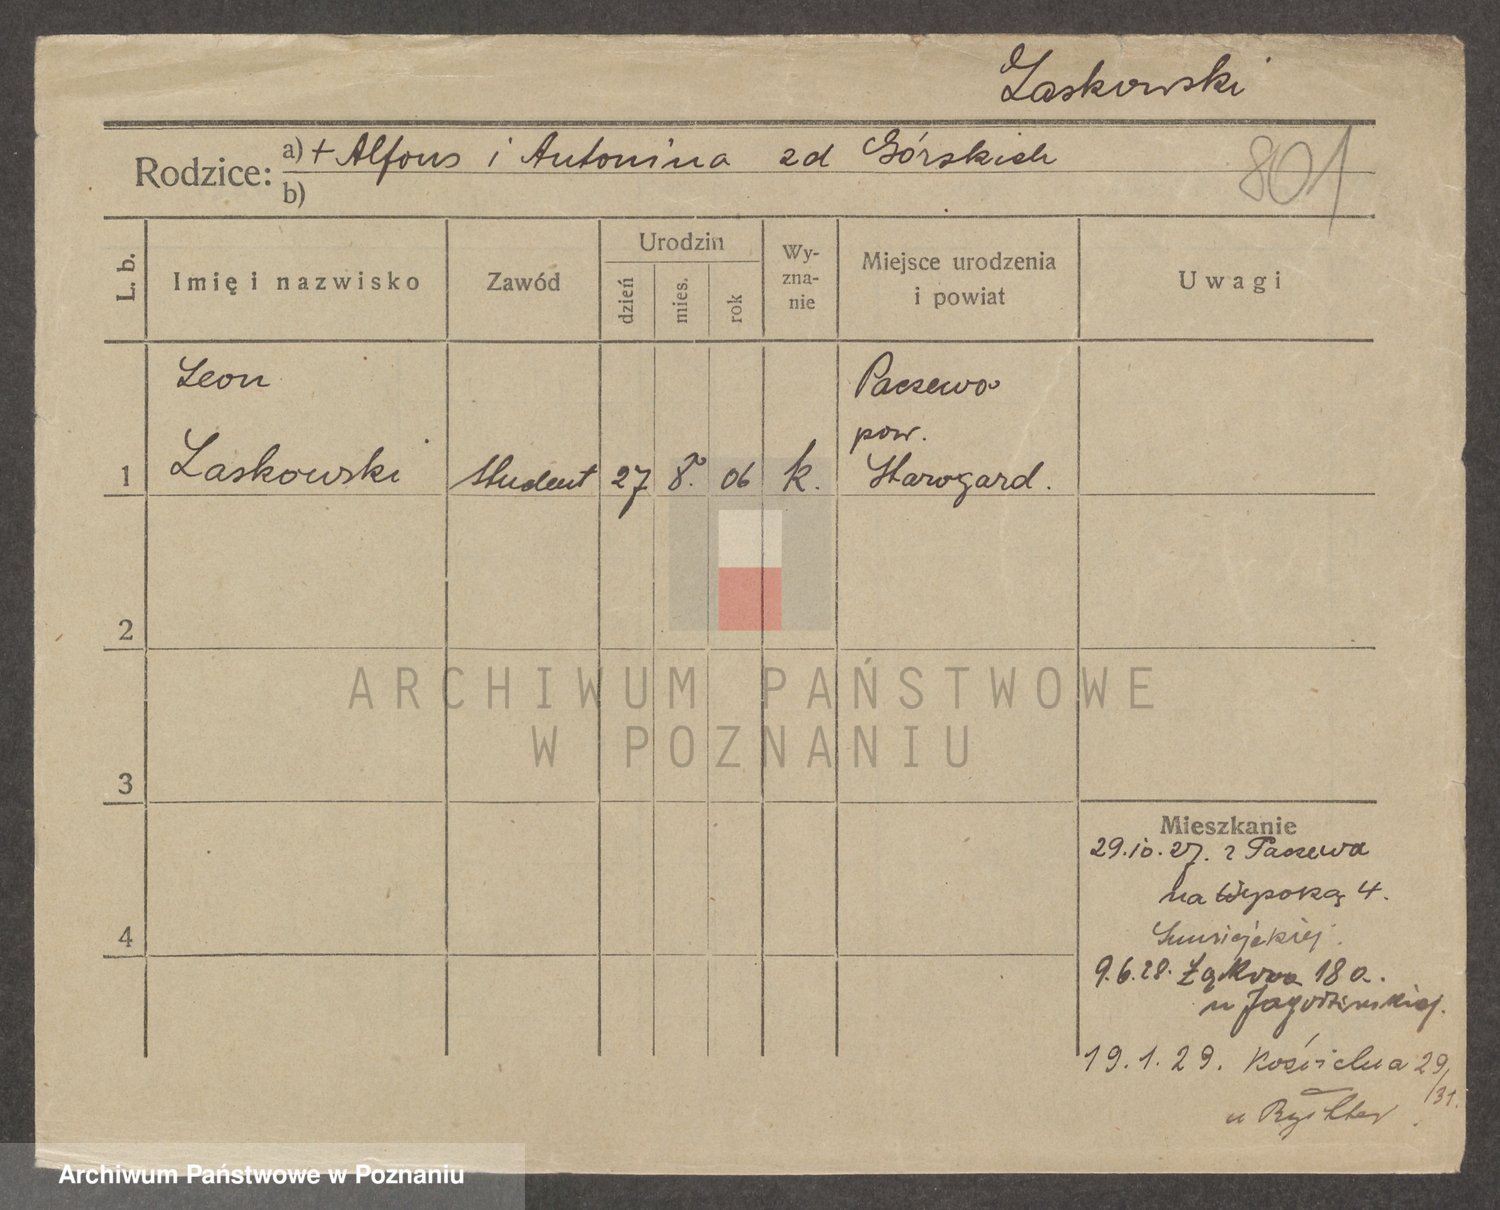 Laskowski
Rodzice: a) + Alfons i Antonina zd Górskich
b)
801
L. b.
Imię i nazwisko
Zawód
Urodzin
dzień
mies.
rok
Wy-
zna-
nie
Miejsce urodzenia
i powiat
Uwagi
Leon
Laskowski
1
student
27
8.
06
k.
Paczewo
pow.
Starogard.
2
3
4
Mieszkanie
29.10.27. z Paczewa
na Wysoką 4.
9.6.28. Łąkowa 18a.
u
19.1.29. Kościelna 29/31.
u Rychter
ARCHIWUM PAŃSTWOWE
W POZNANIU
Archiwum Państwowe w Poznaniu